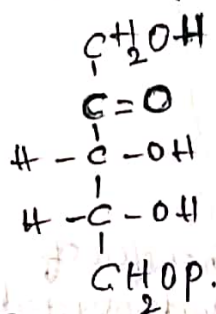 CH2OH
C=O
H-C-OH
H-C-OH
CH2OP.